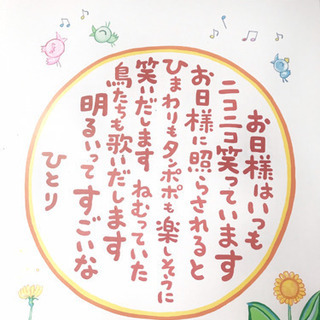 お日様はいつも
ニコニコ笑っています
お日様に照らされると
ひまわりもタンポポも楽しそうに
笑いだします ねむっていた
鳥たちも歌いだします
明るいってすごいな
ひとり